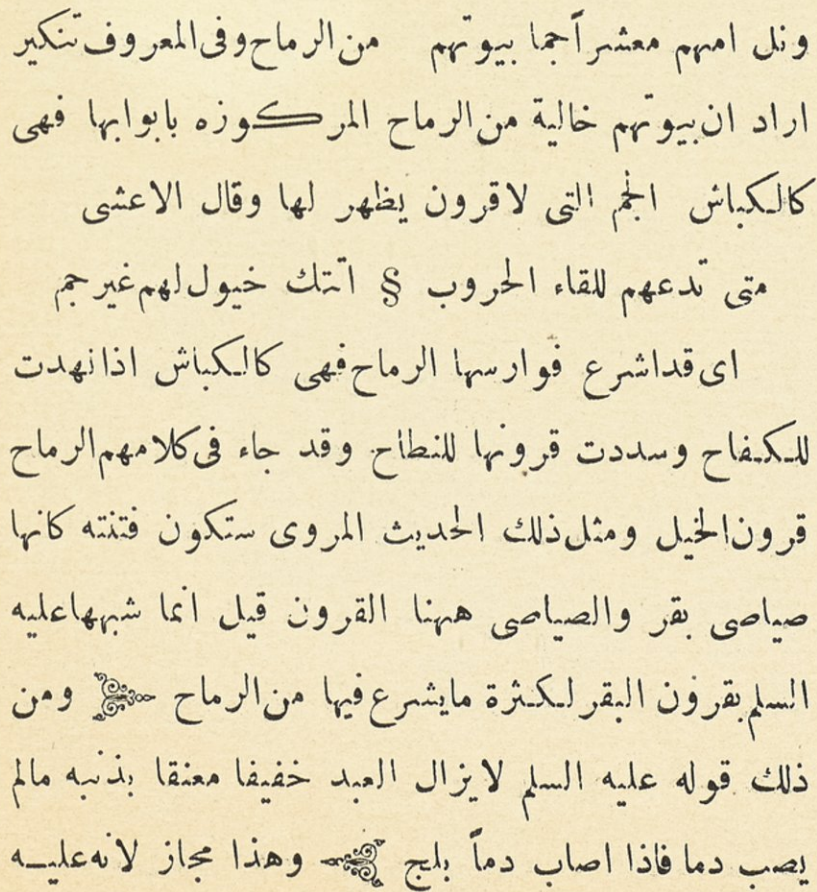 ونل امهم معشراً جما بيوتهم من الرماح وفى المعروف تنكير
اراد ان بيوتهم خالية من الرماح المركوزه بابوابها فهى
كالكباش الجم التى لاقرون يظهر لها وقال الاعشى
متى تدعهم للقاء الحروب § اتتك خيول لهم غير جم
اى قداشرع فوارسها الرماح فهى كالكباش اذا نهدت
للكفاح وسددت قرونها للنطاح وقد جاء فى كلامهم الرماح
قرون الخيل ومثل ذلك الحديث المروى ستكون فتنته كانها
صياصى بقر والصياصى ههنا القرون قيل انما شبهها عليه
السلم بقرون البقر لكثرة مايشرع فيها من الرماح ومن
ذلك قوله عليه السلم لايزال العبد خفيفا معنقا بذنبه مالم
يصب دما فاذا اصاب دماً بلج وهذا مجاز لانه عليه